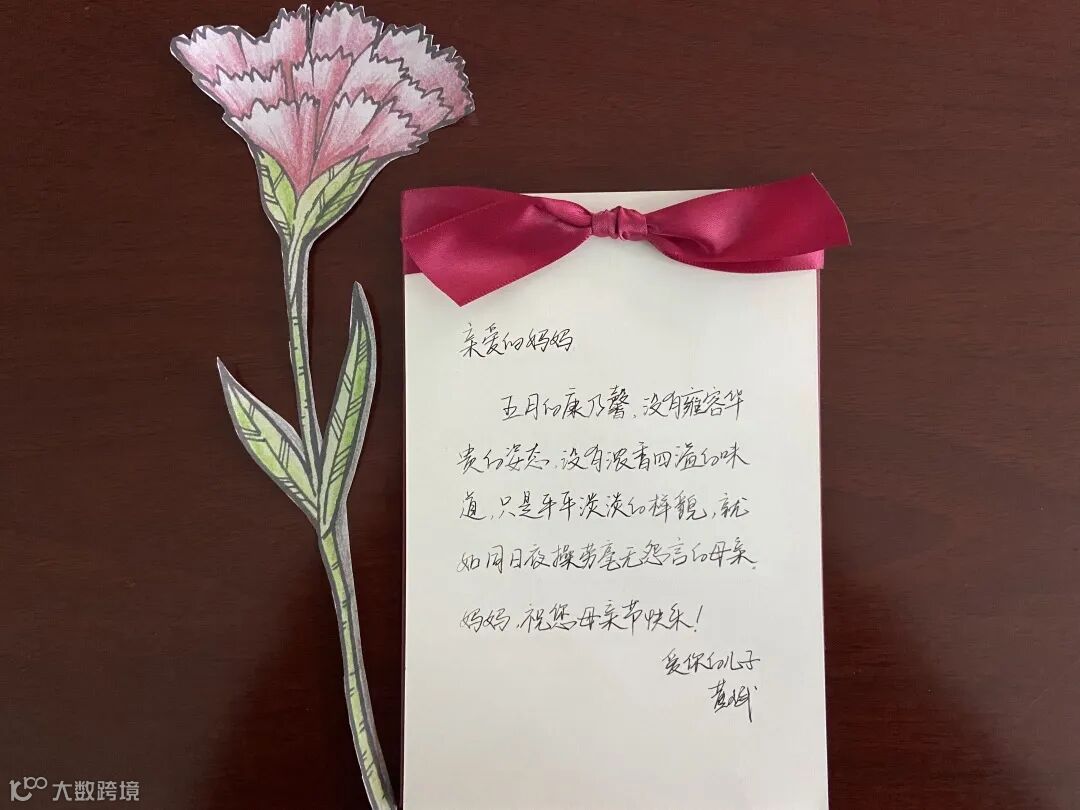 亲爱的妈妈
五月的康乃馨,没有雍容华
贵的姿态,没有浓香四溢的味
道,只是平平淡淡的样貌,就
如同日夜操劳毫无怨言的母亲.
妈妈,祝您母亲节快乐!
爱你的儿子
黄斌
大数跨境